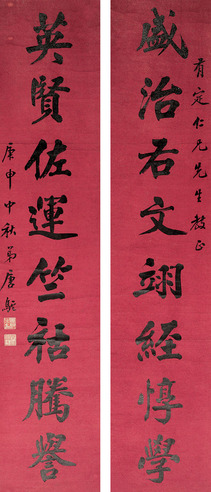 有定仁兄先生教正
盛治右文翊經惇學
英賢佐運竺祜騰譽
庚申中秋弟唐駝